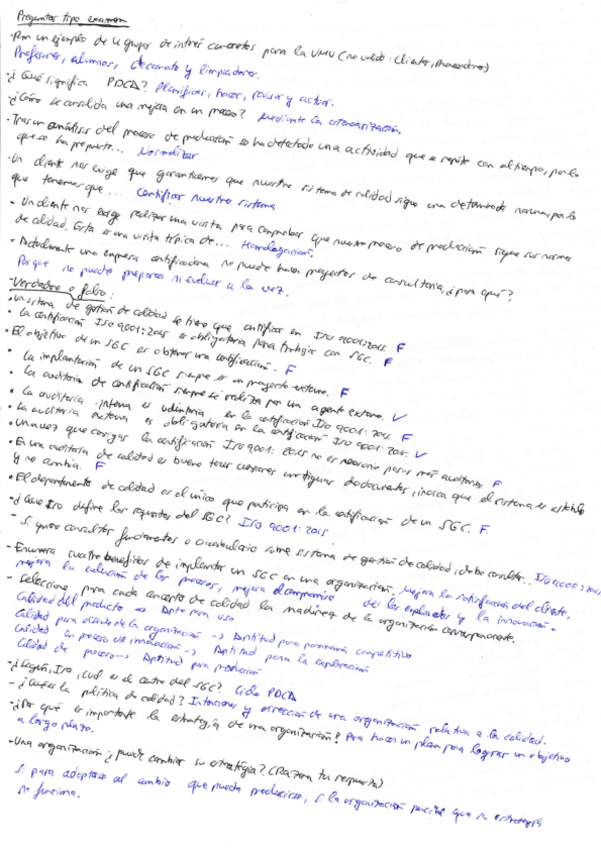 Preguntas tipo examen
- Pon un ejemplo de 4 grupos de interés concretos para la UMU (no valido: clientes, proveedores)
Profesores, alumnos, decanato y limpiadores.
- ¿Qué significa PDCA? Planificar, hacer, pausar y actuar.
- ¿Cómo se consolida una mejora en un proceso? Mediante la estandarización.
- Tras un análisis del proceso de producción se ha detectado una actividad que se repite con el tiempo, por lo
que se ha propuesto... Normalizar
- Un cliente nos exige que garanticemos que nuestro sistema de calidad sigue una determinada norma, por lo
que tenemos que... Certificar nuestro sistema
- Un cliente nos exige realizar una visita para comprobar que nuestro proceso de producción sigue sus normas
de calidad. Esta es una visita típica de... Homologación.
- Actualmente una empresa certificadora no puede hacer proyectos de consultoría, ¿por qué?
Porque no puede preparar ni evaluar a la vez.
- Verdadero o falso:
• Un sistema de gestión de calidad se tiene que certificar en ISO 9001:2015. F
• La certificación ISO 9001:2015 es obligatoria para trabajar con SGC. F
• El objetivo de un SGC es obtener una certificación. F
• La implantación de un SGC siempre es un proyecto externo. F
• La auditoria de certificación siempre se realiza por un agente externo. V
• La auditoria interna es voluntaria en la certificación ISO 9001:2015. F
• La auditoria externa es obligatoria en la certificación ISO 9001:2015. V
• Una vez que consigas la certificación ISO 9001:2015 no es necesario pasar más auditorias. F
• En una auditoria de calidad es bueno tener versiones antiguas de documentos, indica que el sistema es estable
y no cambia. F
• El departamento de calidad es el único que participa en la certificación de un SGC. F.
- ¿Que ISO define los requisitos del SGC? ISO 9001:2015
- Si quiero consultar fundamentos o vocabulario sobre sistema de gestión de calidad, debo consultar.. ISO 9000:2015
- Enumera cuatro beneficios de implantar un SGC en una organización. Mejora la satisfacción del cliente,
mejora la evolución de los procesos, mejora el compromiso de los empleados y la innovación.
- Selecciona para cada concepto de calidad la madurez de la organización correspondiente.
Calidad del producto => Apto para uso
Calidad para diseño de la organización -> Aptitud para panorama competitivo
Calidad en proceso de innovación -> Aptitud para la exploración
Calidad de proceso -> Aptitud para producción
- ¿Según ISO, cual es el centro del SGC? Ciclo PDCA
- ¿Cuál es la política de calidad? Intenciones y dirección de una organización relativa a la calidad.
- ¿Por qué es importante la estrategia de una organización? Para hacer un plan para lograr un objetivo
a largo plazo.
- Una organización ¿puede cambiar su estrategia? (Razona tu respuesta)
Si para adaptarse al cambio que pueda producirse, si la organización percibe que su estrategia
no funciona.